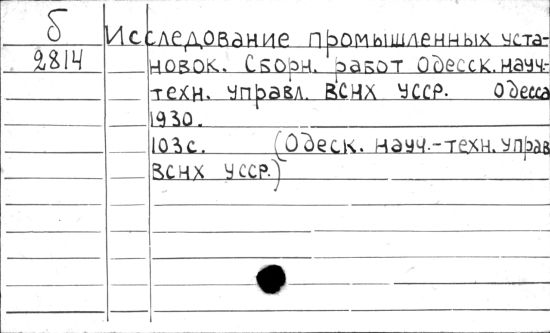 б
2814
Исследование промышленных уста-
новок. Сборн. работ Одесск. науч.-
техн. управл. ВСНХ УССР. Одесса
1930.
103с. (Одеск. науч.-техн. управ
ВСНХ УССР.)